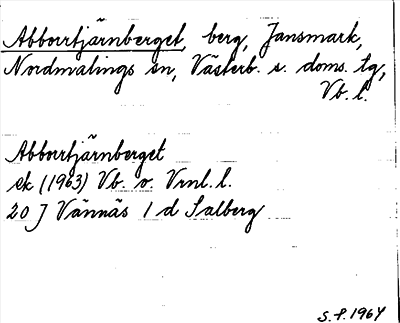 Abborrtjärnberget, berg, Jansmark,
Nordmalings sn, Västerb. s. doms. tg,
Vb. l.
Abborrtjärnberget
ek (1963) Vb. o. Vrnl. l.
20 J Vännäs 1 d Salberg
S.P. 1964